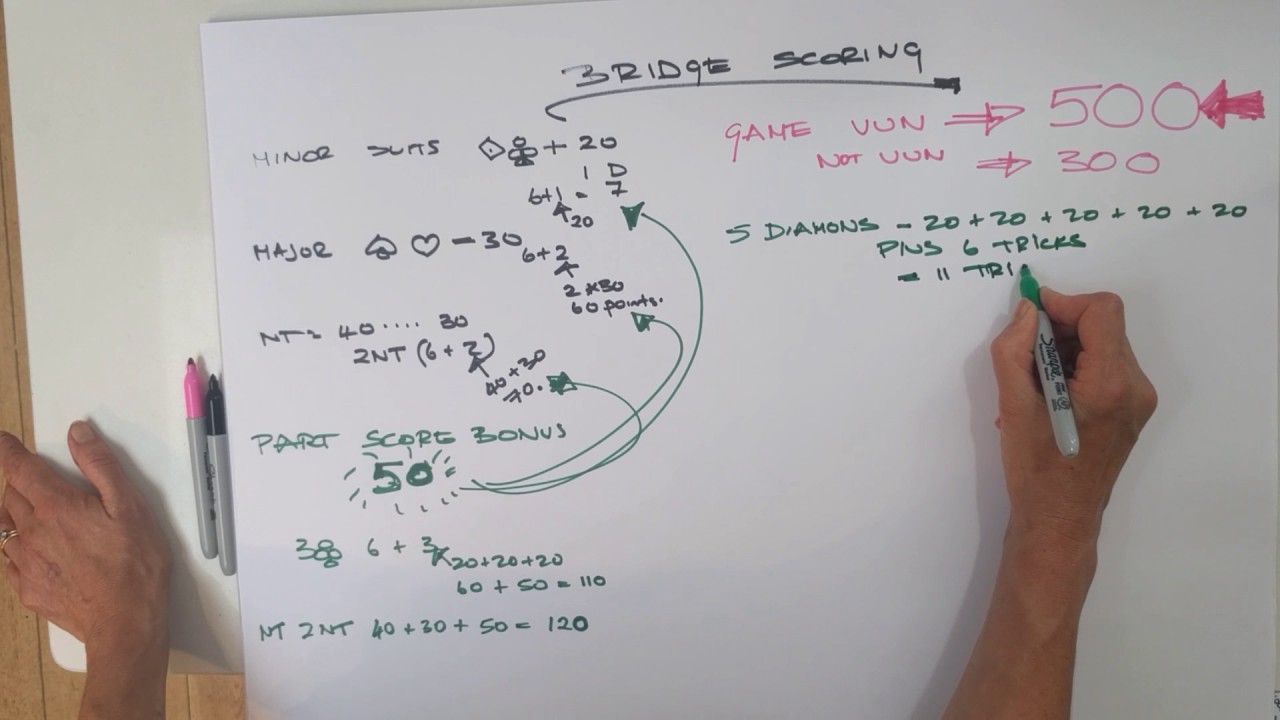 BRIDGE SCORING
MINOR SUITS ♢♣ + 20
1 D
6+1 = 7
20
MAJOR ♤ ♡ - 30
6+2
2 x 30
60 points.
NT = 40 .... 30
2NT (6 + 2)
40 + 30
70.
PART SCORE BONUS
50
3♣ 6 + 3
20+20+20
60 + 50 = 110
NT 2NT 40+30+50 = 120
GAME VUN ⇒ 500
NOT VUN ⇒ 300
5 DIAMONS - 20 + 20 + 20 + 20 + 20
PLUS 6 TRICKS
= 11 TRI
Sharpie